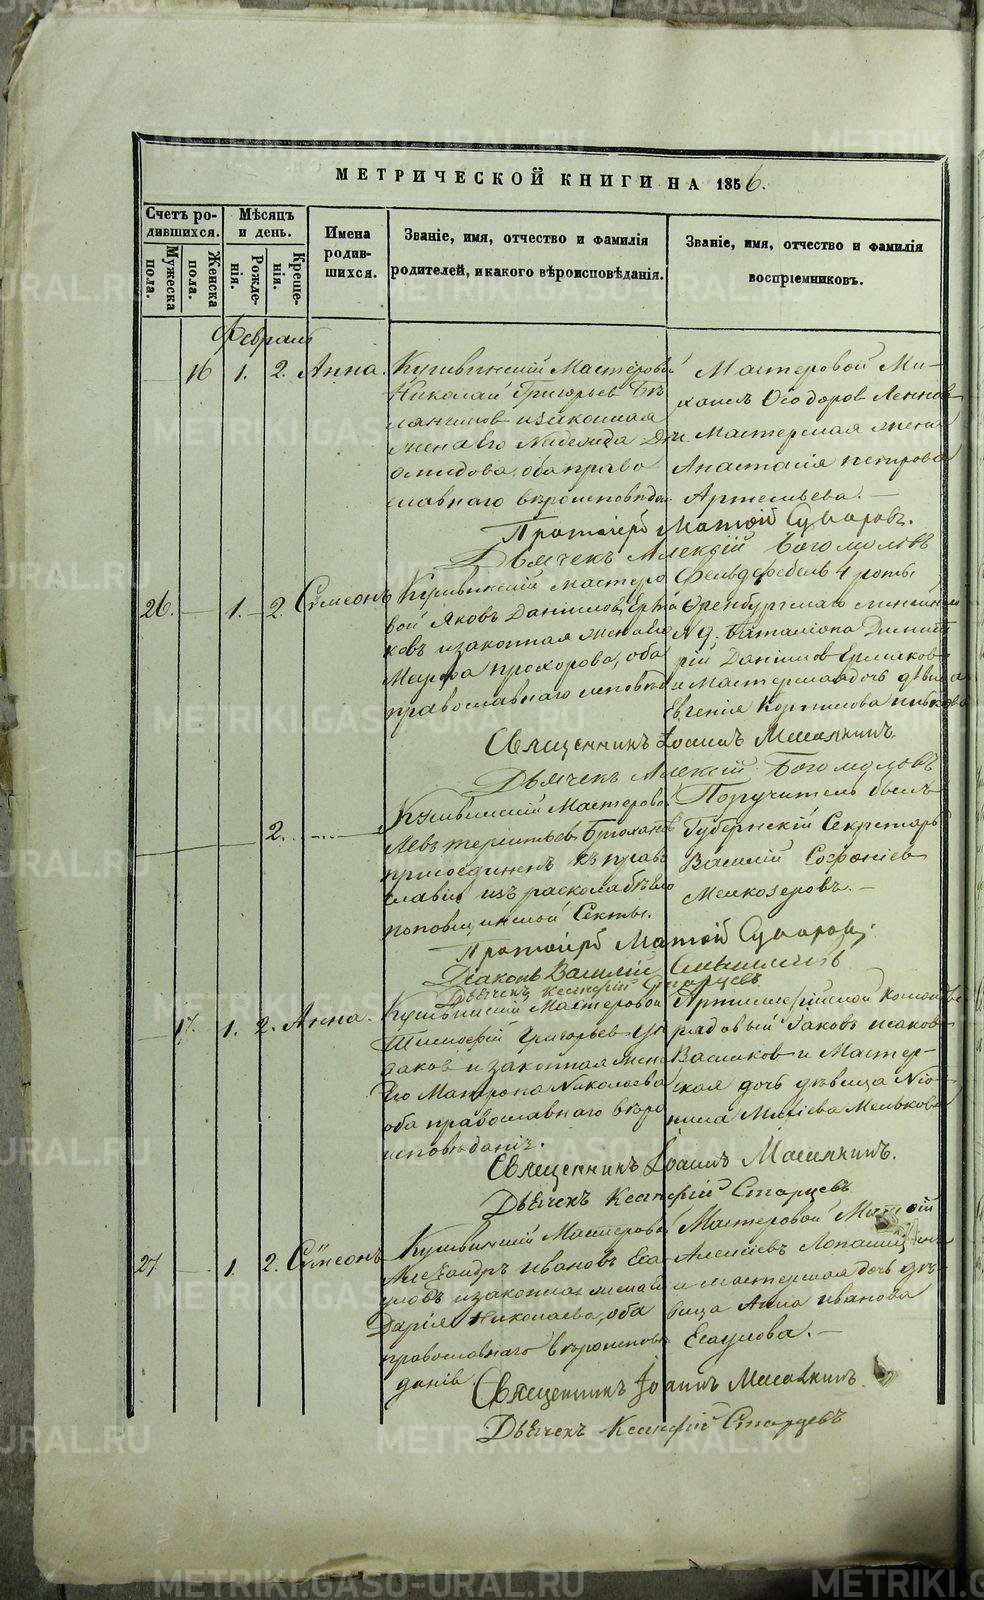 МЕТРИЧЕСКОЙ КНИГИ НА 1856.
Счетъ ро-
дившихся.
Мужеска
пола.
Женска
пола.
Мѣсяцъ
и день.
Рожде-
нія.
Креще-
нія.
Имена
родив-
шихся.
Званіе, имя, отчество и фамилія
родителей, и какого вѣроисповѣданія.
Званіе, имя, отчество и фамилія
воспріемниковъ.
Февраль
16 1. 2. Анна.
Кушвинскій Мастеровой
Николай Григорьев
и законная
жена Его Надежда
обаправо
славнаго вѣроисповѣдан
Мастеровой Ми-
хаилъ Ѳеодоров
и Мастерская жена
Анастасія Петрова
Артемьева. —
Протоіерей Матѳій Суваровъ.
Дьячекъ Алексій Богомоловъ
26. — 1. — 2. Сѵмеонъ
Кушвинскій мастеро
вой Яковъ Данилов Ерма
ковъ и законная жена его
Мавра Прохорова, оба
православнаго исповѣд
Фельдфебель 4 роты
Оренбургскаго линейнаго
№ 9. Баталіона Димит
рій Данилов Ермаков
и Мастерская дочь дѣвица
Евгенія Корнилова
Священникъ Іоаннъ
Дьячекъ Алексій Богомоловъ
2.
Кушвинскій Мастеровой
Левъ Терентьев
присоединенъ къ право
славію изъ раскола Бѣгло
поповщинской Секты.
Поручитель былъ
Губернскій Секретарь
Василій Софоніев
Мелкозеровъ. —
Протоіерей Матѳій Суваровъ.
Діаконъ Василій
Дьячекъ Ксенофій Старцевъ
17. 1. 2. Анна.
Кушвинскій Мастеровой
Тимоѳей Григорьев
и законная жена
Его Матрона Николаева
оба православнаго вѣро
исповѣданія.
Артиллерійской команды
рядовый Іаковъ Исаков
Васильков и Мастер-
ская дочь дѣвица
Мелькова
Священникъ Іоаннъ
Дьячекъ Ксенофій Старцевъ
27. — 1. 2. Сѵмеонъ
Кушвинскій Мастеровой
Александръ Ивановъ Еса
уловъ и законная жена его
Дарія Николаева, оба
православнаго вѣроисповѣ
данія
Мастеровой
Алексіевъ
и мастерская дочь дѣ
вица Анна Иванова
Есаулова. —
Священникъ Іоаннъ
Дьячекъ Ксенофій Старцевъ
METRIKI.GASO-URAL.RU